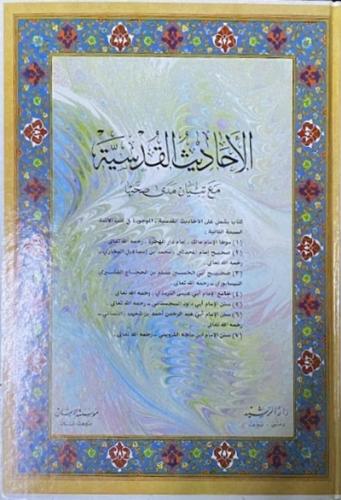 الأحاديث القدسية
مع تبيان مدى صحتها
كتاب يشتمل على الأحاديث القدسية، الموجودة في كتب الأئمة
السبعة التالية:
(١) موطأ الإمام مالك، إمام دار الهجرة، رحمه الله تعالى
(٢) صحيح إمام المحدثين، محمد بن إسماعيل البخاري،
رحمه الله تعالى.
(٣) صحيح أبي الحسين مسلم بن الحجاج القشيري
النيسابوري ـ رحمه الله تعالى.
(٤) جامع الإمام أبي عيسى الترمذي، رحمه الله تعالى.
(٥) سنن الإمام أبي داود السجستاني ـ رحمه الله تعالى.
(٦) سنن الإمام أبي عبد الرحمن أحمد بن شعيب، النسائي ـ
رحمه الله تعالى
(٧) سنن الإمام ابن ماجة القزويني ـ رحمه الله تعالى.
دار الرشيد
دمشق ـ بيروت
مؤسسة الإيمان
بيروت ـ لبنان